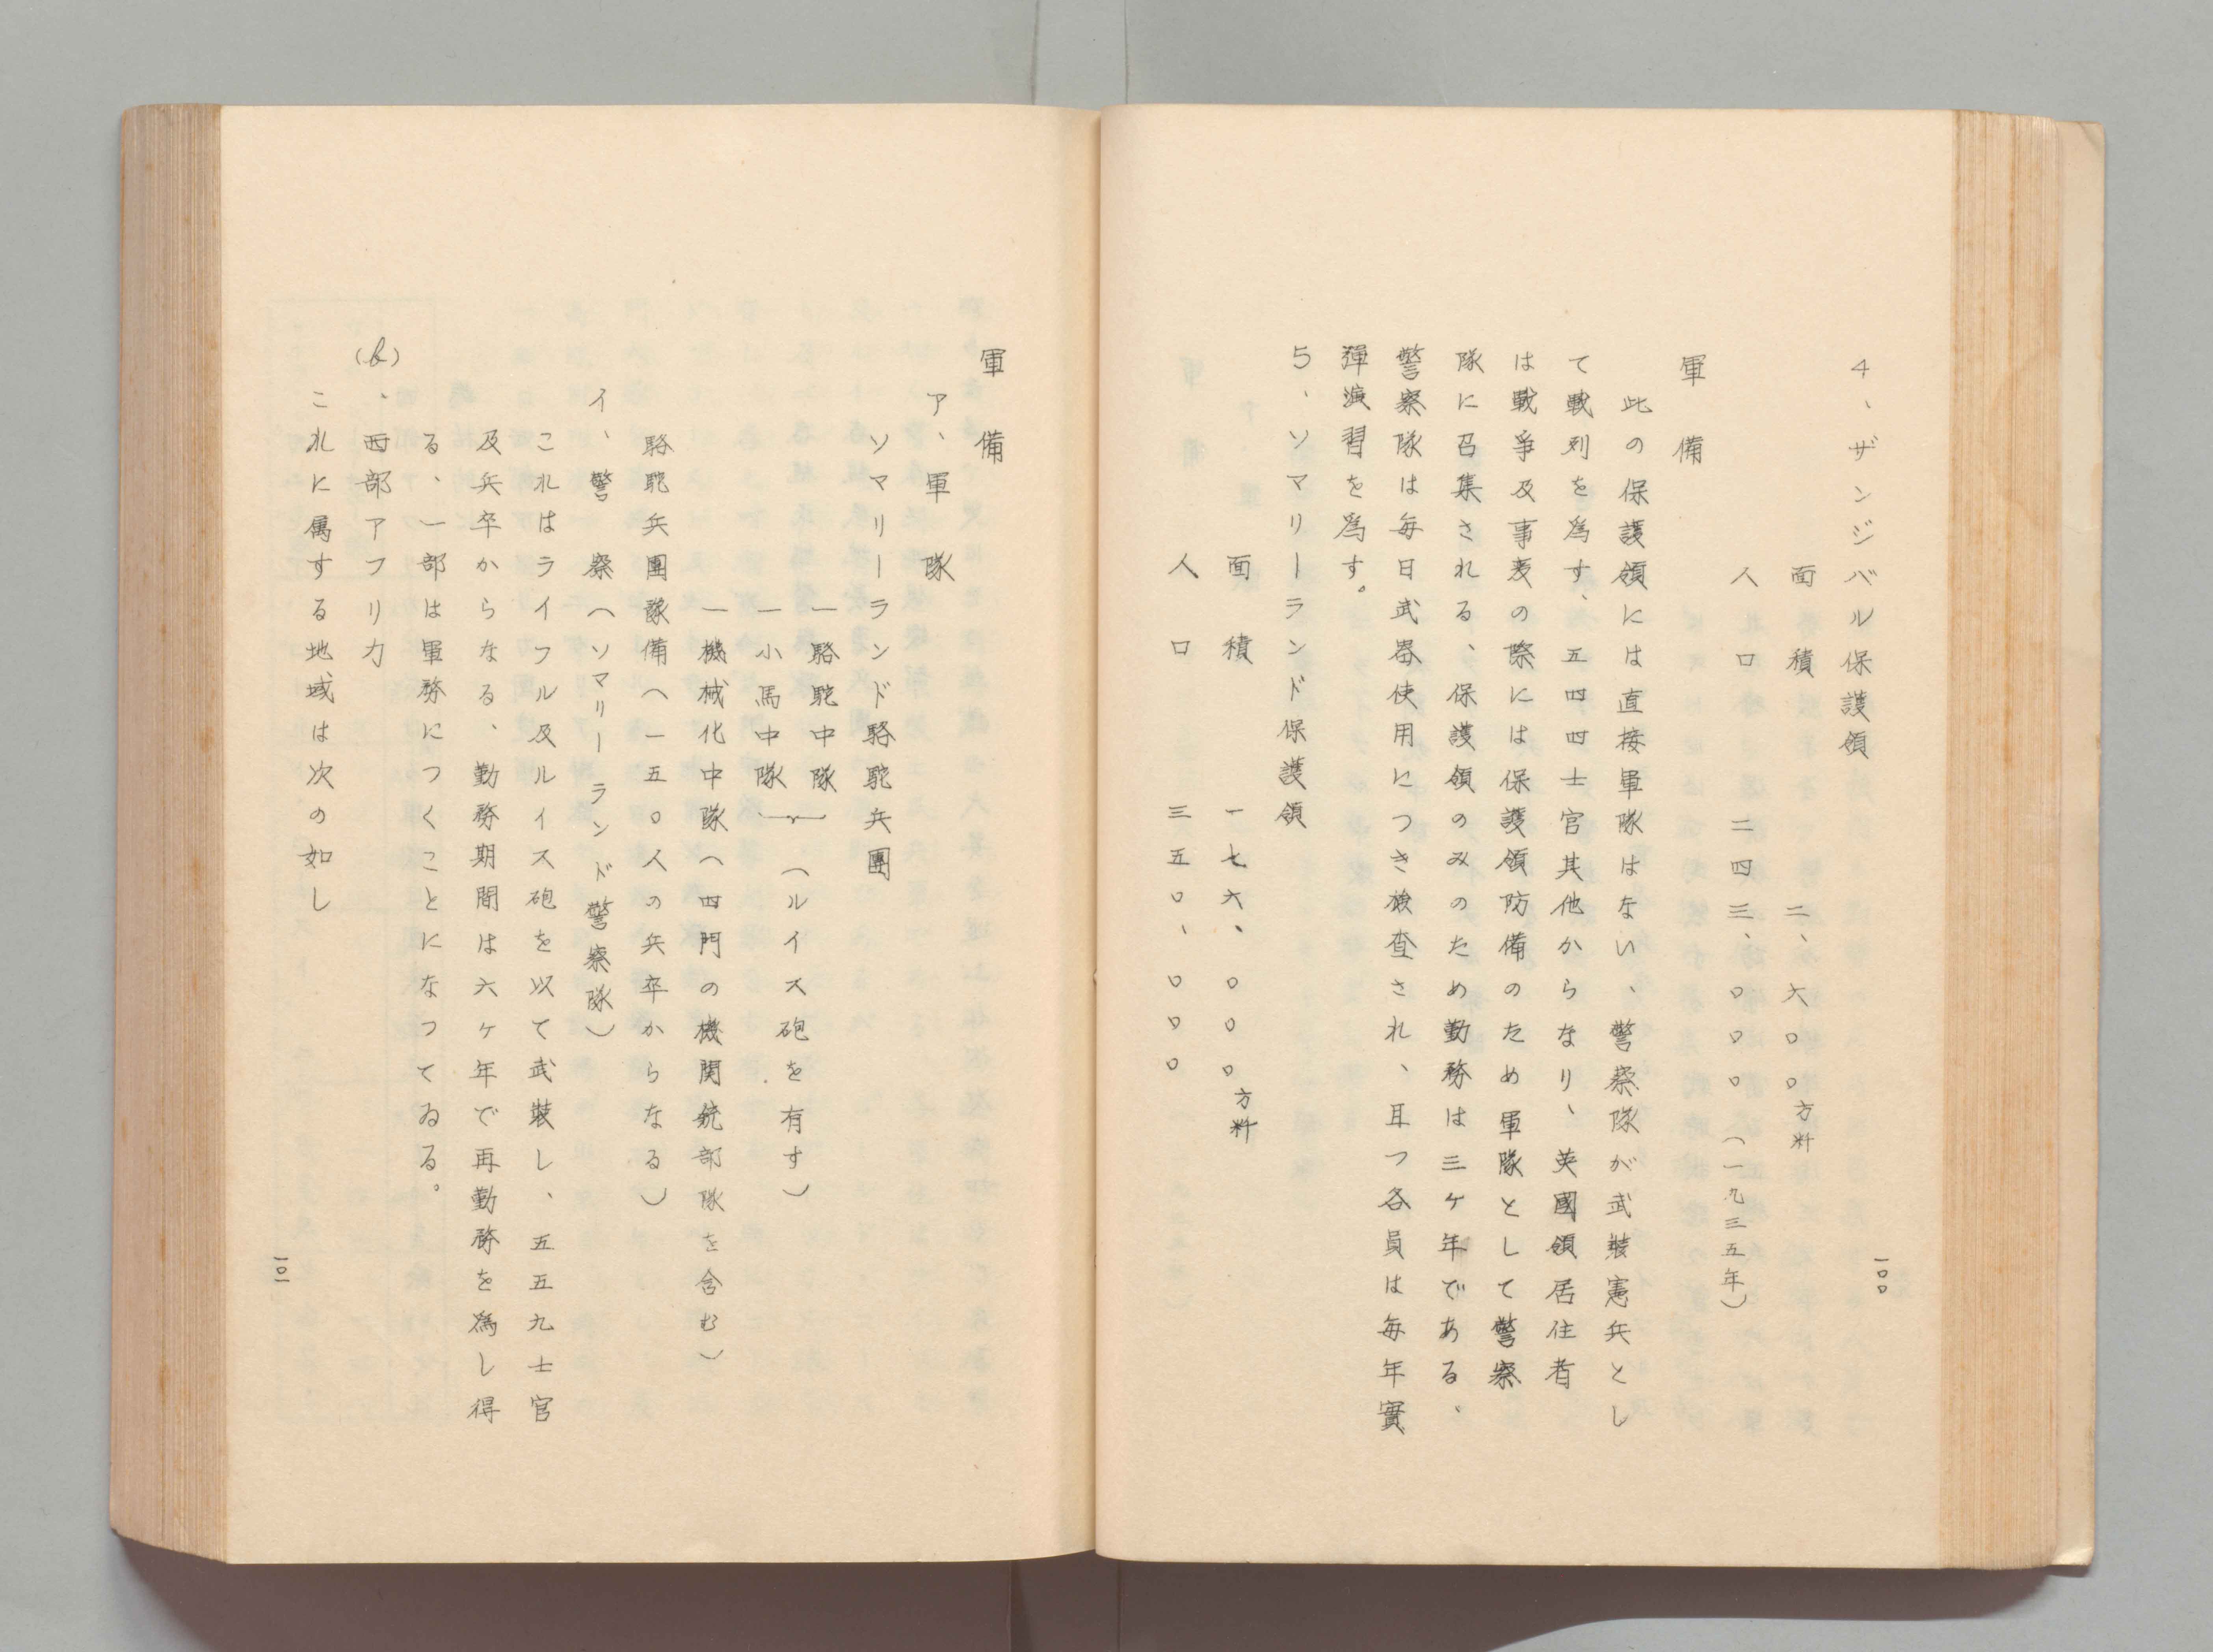 4、ザンジバル保護領
面積 二、六〇〇方粁
人口 二四三、〇〇〇（一九三五年）
軍備
此の保護領には直接軍隊はない、警察隊が武裝憲兵とし
て戦列を爲す、五四四士官其他からなり、英國領居住者
は戰爭及事変の際には保護領防備のため軍隊として警察
隊に召集される、保護領のみのため勤務は三ヶ年である、
警察隊は毎日武器使用につき檢査され、且つ各員は毎年實
彈演習を爲す。
5、ソマリーランド保護領
面積 一七六、〇〇〇方粁
人口 三五〇、〇〇〇
一〇〇
軍備
ア、軍隊
ソマリーランド駱駝兵團
一駱駝中隊
一小馬中隊
（ルイス砲を有す）
一機械化中隊（四門の機関銃部隊を含む）
駱駝兵團豫備（一五〇人の兵卒からなる）
イ、警察（ソマリーランド警察隊）
これはライフル及ルイス砲を以て武裝し、五五九士官
及兵卒からなる、勤務期間は六ヶ年で再勤務を爲し得
る、一部は軍務につくことになつてゐる。
(b)、西部アフリカ
これに属する地域は次の如し
一〇一